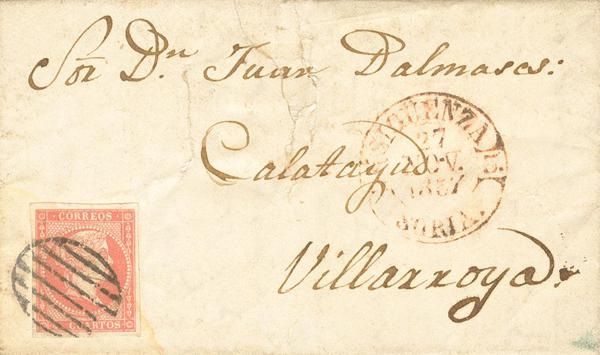 Sor Dn Juan Dalmases:
Calatayud
Villarroya.
SIGUENZA
27
NOV.
1857
SORIA.
CORREOS
CUARTOS